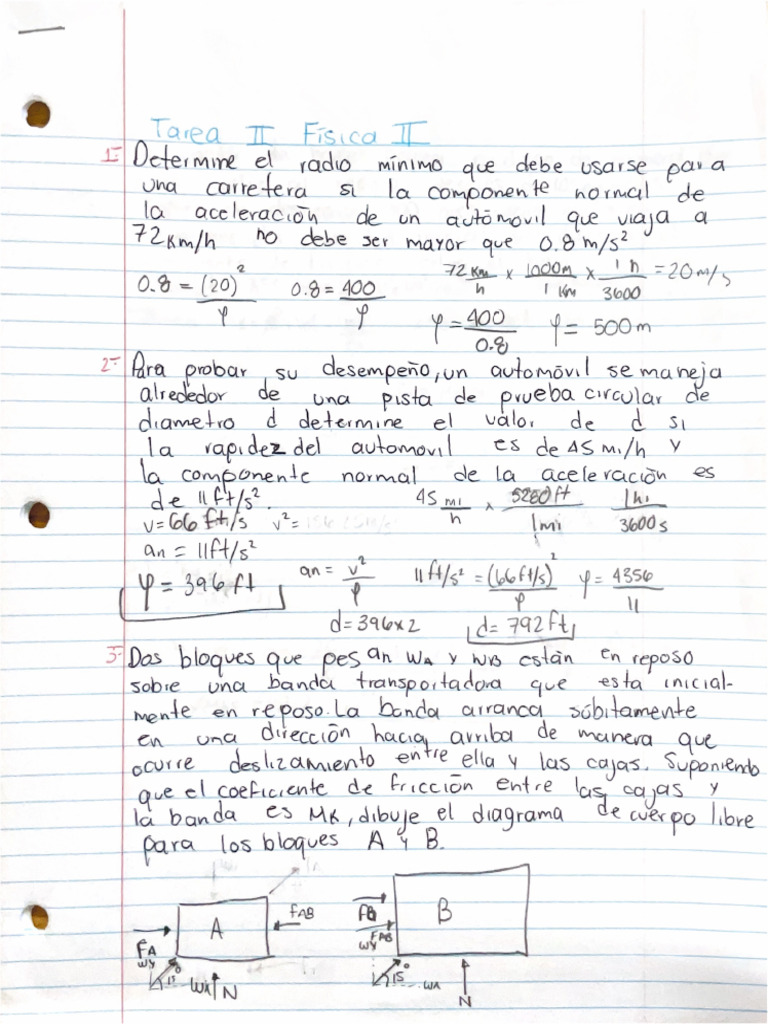 Tarea II Física II
1- Determine el radio mínimo que debe usarse para
una carretera si la componente normal de
la aceleración de un automovil que viaja a
72Km/h no debe ser mayor que 0.8 m/s²
0.8 = (20)²/φ 0.8 = 400/φ 72 Km/h x 1000m/1 Km x 1 h/3600 = 20 m/s
φ = 400/0.8 φ = 500 m
2- Para probar su desempeño, un automóvil se maneja
alrededor de una pista de prueba circular de
diametro d determine el valor de d si
la rapidez del automovil es de 45 mi/h y
la componente normal de la aceleración es
de 11ft/s². 45 mi/h x 5280 ft/1mi 1h/3600s
v = 66 ft/s v² =
an = 11ft/s²
φ = 396 ft an = v²/φ 11ft/s² = (66ft/s)²/φ φ = 4356/11
d = 396x2 d = 792 ft
3- Dos bloques que pesan WA y WB están en reposo
sobre una banda transportadora que esta inicial-
mente en reposo. La banda arranca súbitamente
en una dirección hacia arriba de manera que
ocurre deslizamiento entre ella y las cajas. Suponiendo
que el coeficiente de fricción entre las cajas y
la banda es MK, dibuje el diagrama de cuerpo libre
para los bloques A y B.
A FAB FB B
FA FAB
WY WY
15° 15° WA
WA N N